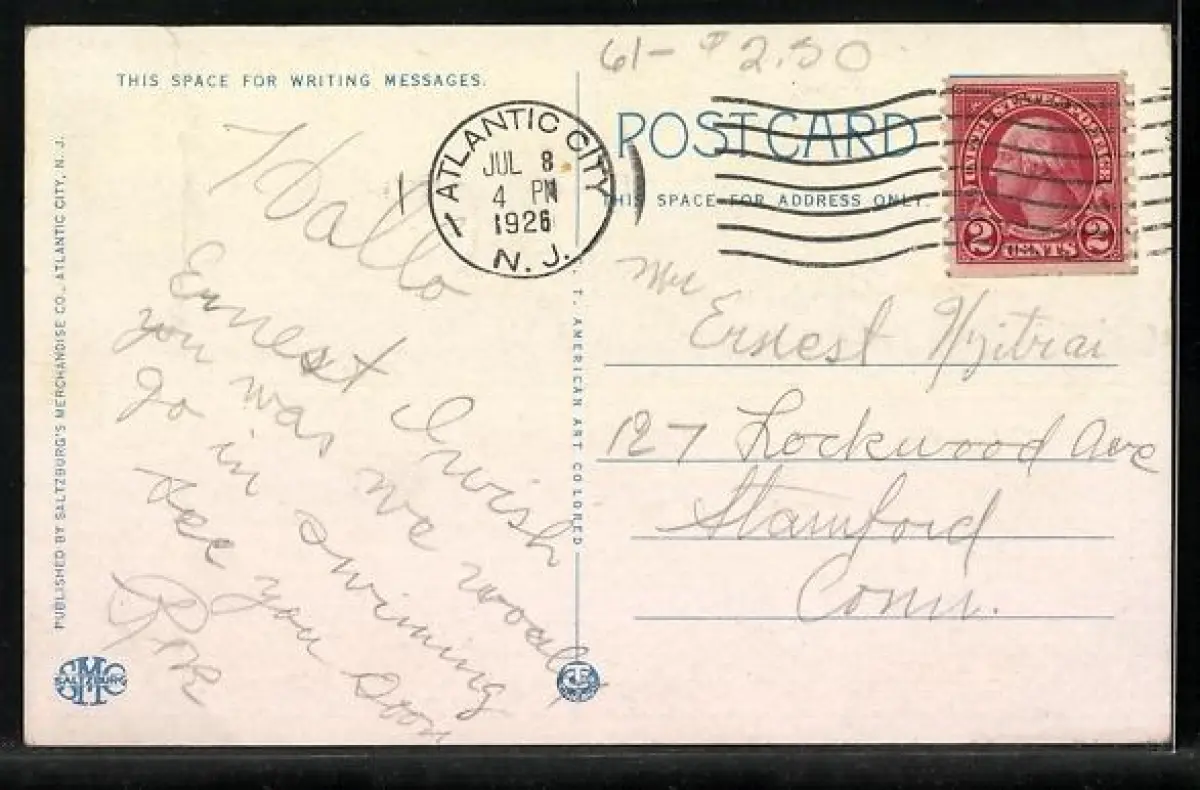 61- $2.50
THIS SPACE FOR WRITING MESSAGES.
ATLANTIC CITY
JUL 8
4 PM
1926
N. J.
POST CARD
THIS SPACE FOR ADDRESS ONLY.
UNITED STATES POSTAGE
2 CENTS 2
Hallo
Ernest I wish
you was we
go in swimming
see you soon
Mr
Ernest Nyitrai
127 Lockwood Ave
Stamford
Conn.
PUBLISHED BY SALTZBURG'S MERCHANDISE CO., ATLANTIC CITY, N. J.
T. AMERICAN ART COLORED
SMC
SALTZBURG